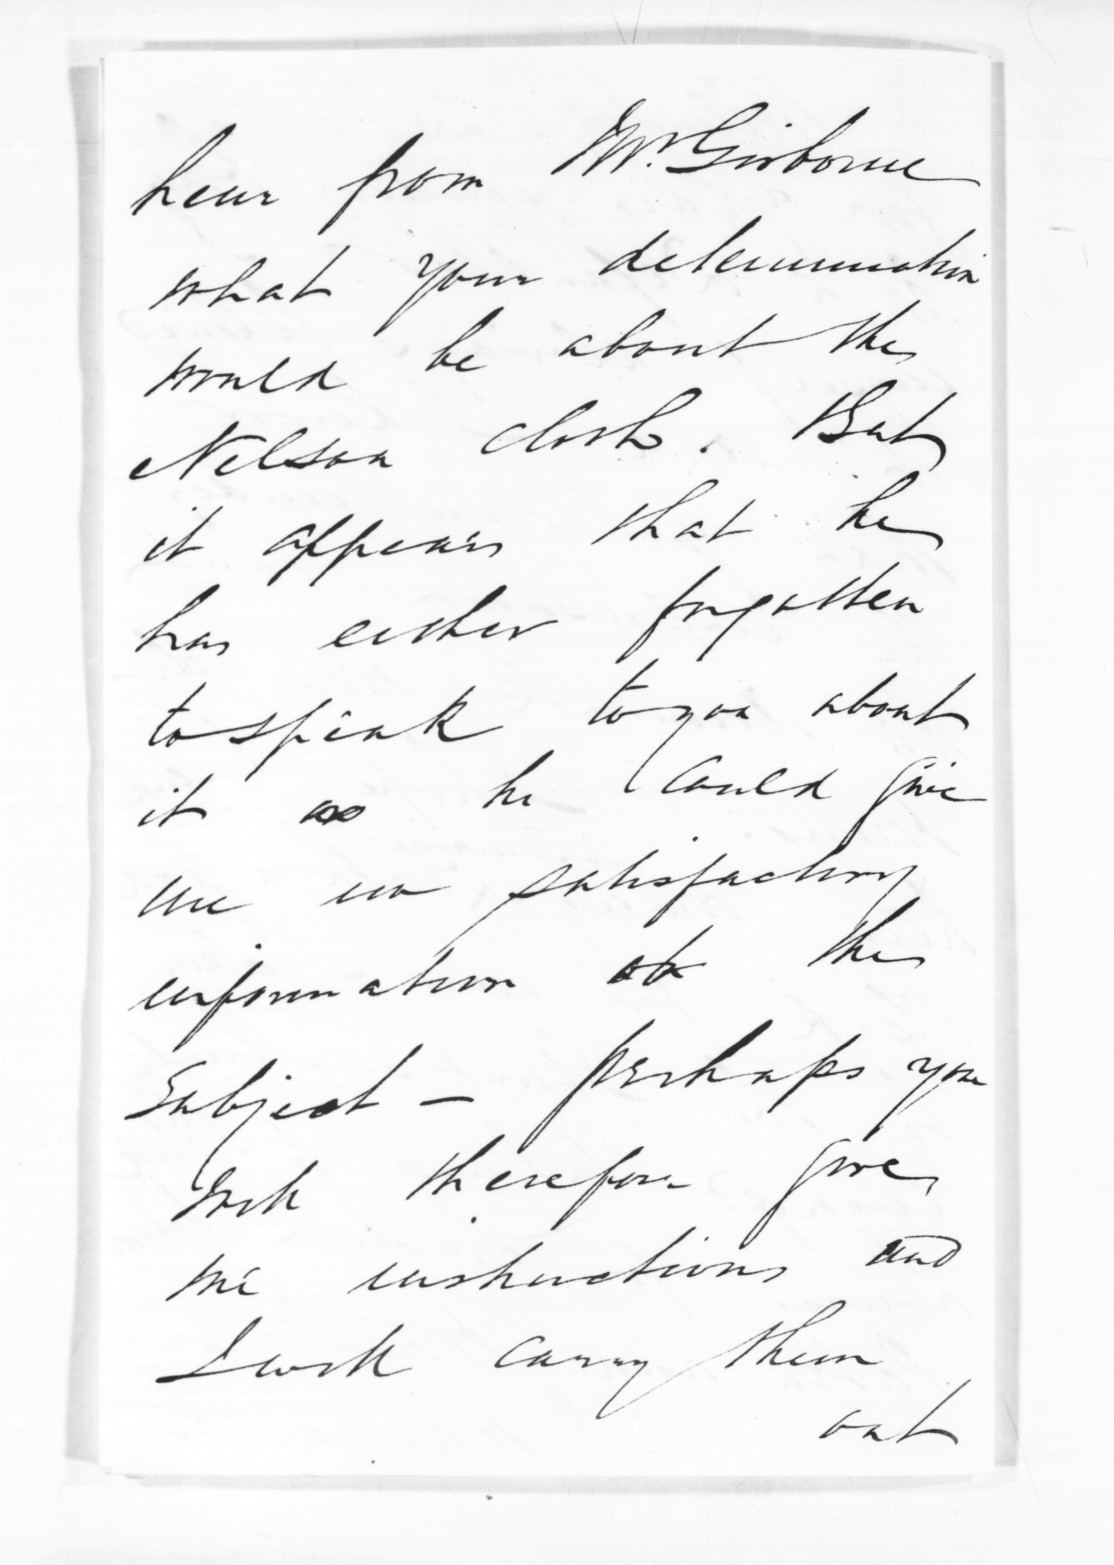 hear from Mr. Gisborne
what your determination
would be about the
Nelson clock. But
it appears that he
has either forgotten
to speak to you about
it or he could give
me no satisfactory
information on the
subject — perhaps you
will therefore give
me instructions and
I will carry them
out